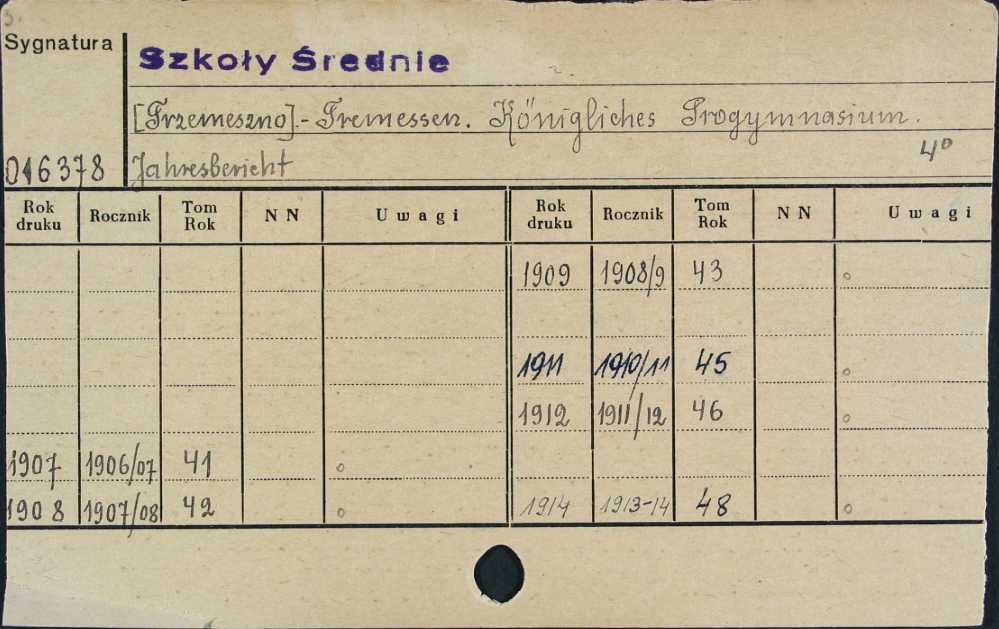 Sygnatura
Szkoły Średnie
[Trzemeszno].- Tremessen. Königliches Progymnasium.
4°
016378 Jahresbericht
Rok druku Rocznik Tom Rok NN Uwagi Rok druku Rocznik Tom Rok NN Uwagi
1909 1908/9 43 o
1911 1910/11 45 o
1912 1911/12 46 o
1907 1906/07 41 o
1908 1907/08 42 o 1914 1913-14 48 o